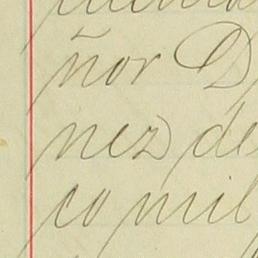 ñor D
nez de
co mil